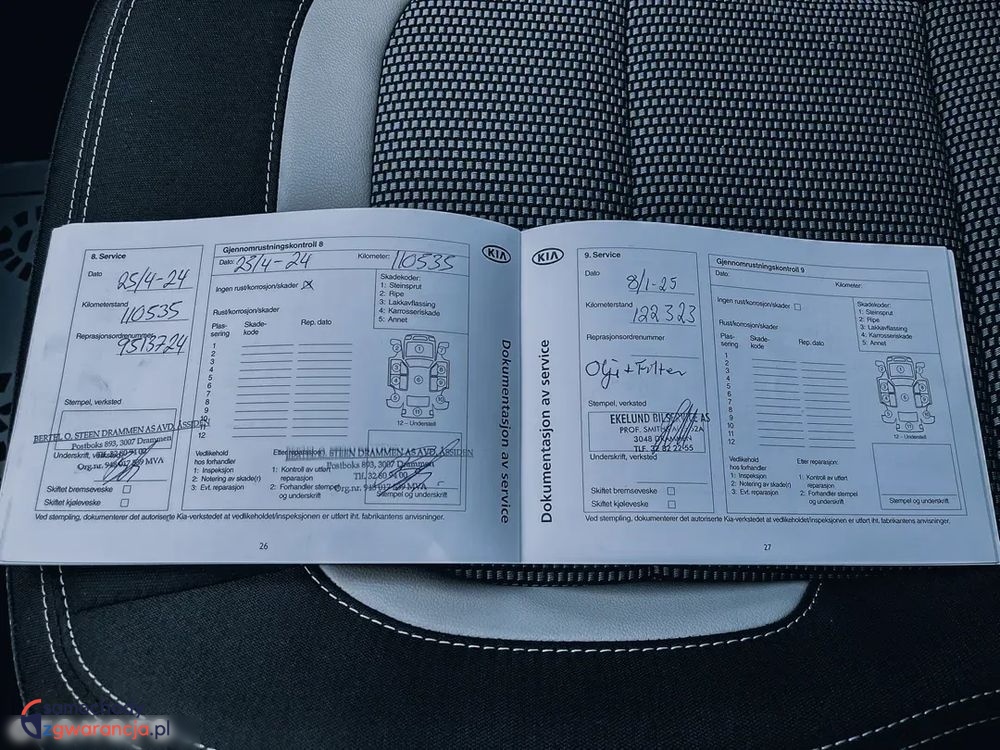 8. Service
Dato
25/4-24
Kilometerstand
110535
Reprasjonsordrenummer
Stempel, verksted
BERTEL O. STEEN DRAMMEN AS AVD. ÅSSIDEN
Postboks 893, 3007 Drammen
Tlf. 32 60 91 00
Underskrift, verksted
Skiftet bremseveske
Skiftet kjøleveske
Gjennomrustningskontroll 8
Dato: 25/4-24
Kilometer: 110535
Ingen rust/korrosjon/skader
Skadekoder:
1: Steinsprut
2: Ripe
3: Lakkavflassing
4: Karrosseriskade
5: Annet
Rust/korrosjon/skader
Plas-
sering
Skade-
kode
Rep. dato
1
2
3
4
5
6
7
8
9
10
11
12
12 – Understell
Vedlikehold
hos forhandler
1: Inspeksjon
2: Notering av skade(r)
3: Evt. reparasjon
Etter reparasjon:
1: Kontroll av utført
reparasjon
2: Forhandler stempel
og underskrift
BERTEL O. STEEN DRAMMEN AS AVD. ÅSSIDEN
Postboks 893, 3007 Drammen
Tlf. 32 60 91 00
Stempel og underskrift
Ved stempling, dokumenterer det autoriserte Kia-verkstedet at vedlikeholdet/inspeksjonen er utført iht. fabrikantens anvisninger.
26
KIA
Dokumentasjon av service
KIA
Dokumentasjon av service
9. Service
Dato
8/1-25
Kilometerstand
122 323
Reprasjonsordrenummer
Olje + Filter
Stempel, verksted
EKELUND BILSERVICE AS
3048 DRAMMEN
TLF. 32 82 22 55
Underskrift, verksted
Skiftet bremseveske
Skiftet kjøleveske
Gjennomrustningskontroll 9
Dato:
Kilometer:
Ingen rust/korrosjon/skader
Skadekoder:
1: Steinsprut
2: Ripe
3: Lakkavflassing
4: Karrosseriskade
5: Annet
Rust/korrosjon/skader
Plas-
sering
Skade-
kode
Rep. dato
1
2
3
4
5
6
7
8
9
10
11
12
12 – Understell
Vedlikehold
hos forhandler
1: Inspeksjon
2: Notering av skade(r)
3: Evt. reparasjon
Etter reparasjon:
1: Kontroll av utført
reparasjon
2: Forhandler stempel
og underskrift
Stempel og underskrift
Ved stempling, dokumenterer det autoriserte Kia-verkstedet at vedlikeholdet/inspeksjonen er utført iht. fabrikantens anvisninger.
27
zgwarancja.pl